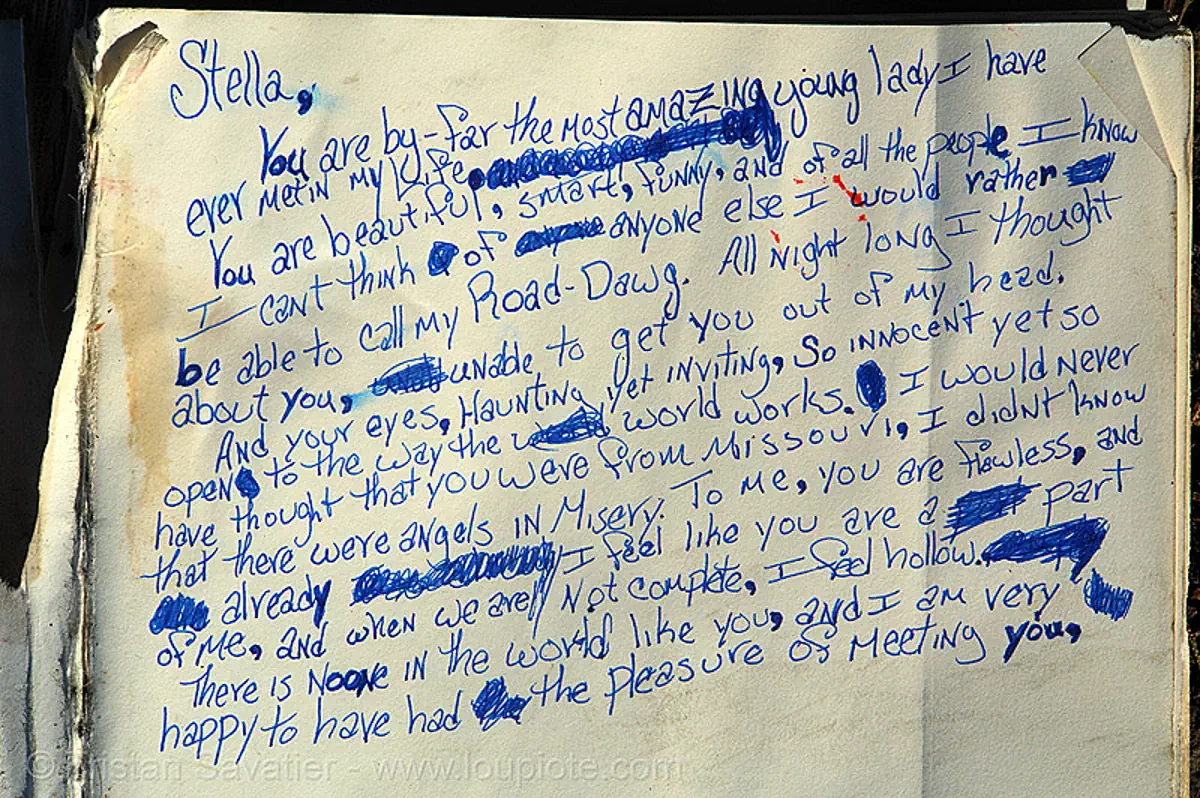 Stella,
You are by-far the most amazing young lady I have
ever met in my Life.
You are beautiful, smart, funny, and of all the people I know
I can't think of anyone else I would rather
be able to call my Road-Dawg. All night long I thought
about you, unable to get you out of my head.
And your eyes, Haunting yet inviting, So innocent yet so
open to the way the world works. I would never
have thought that you were from Missouri, I didnt know
that there were angels in Misery. To me, you are flawless, and
already I feel like you are a part
of me, and when we are Not complete, I feel hollow.
There is Noone in the world like you, and I am very
happy to have had the pleasure of meeting you,
© Tristan Savatier - www.loupiote.com